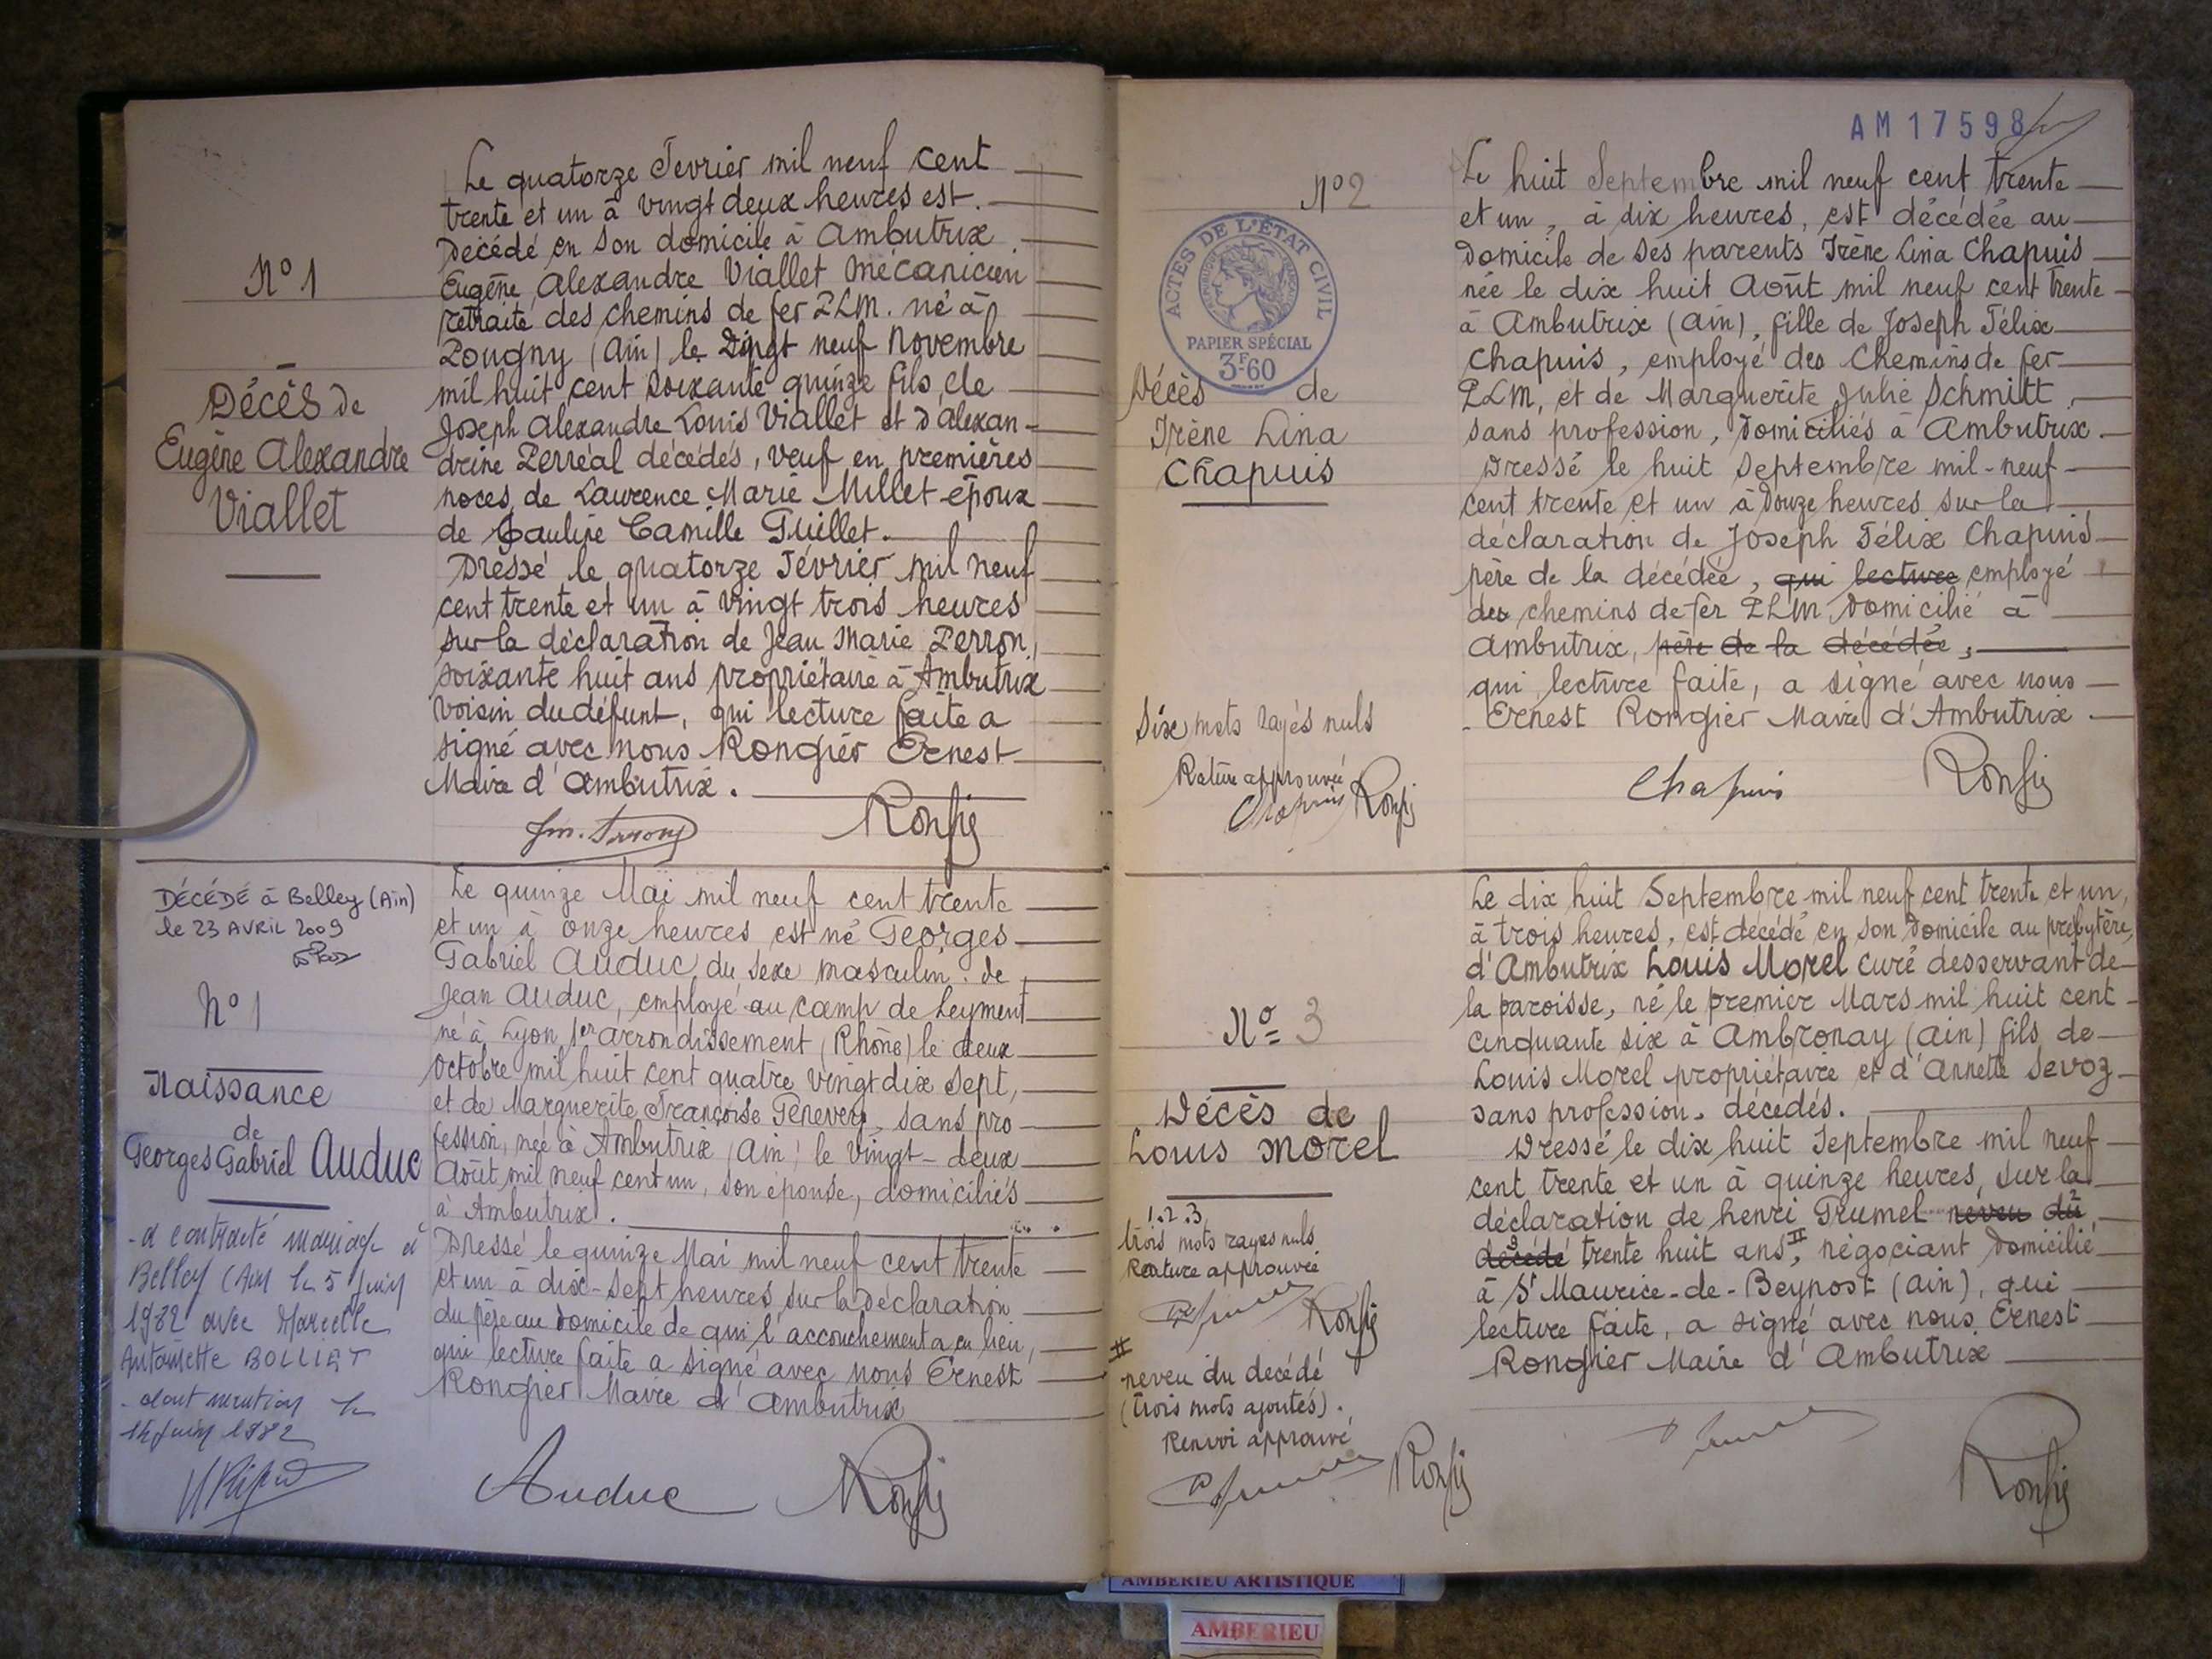 N° 1
Décès de
Eugène Alexandre
Viallet
Le quatorze Fevrier mil neuf cent
trente et un à vingt deux heures est
Décédé en son domicile à Ambutrix
Eugène Alexandre Viallet Mécanicien
retraité des chemins de fer PLM. né à
Pougny (Ain) le Vingt neuf Novembre
mil huit cent soixante quinze fils de
Joseph Alexandre Louis Viallet et d'Alexan-
drine Perréal décédés, veuf en premières
noces de Laurence Marie Millet époux
de Pauline Camille Guillet.
Dressé le quatorze Février mil neuf
cent trente et un à vingt trois heures
sur la déclaration de Jean Marie Perron,
soixante huit ans propriétaire à Ambutrix
voisin du défunt, qui lecture faite a
signé avec nous Rongier Ernest
Maire d'Ambutrix.
DÉCÉDÉ à Belley (Ain)
le 23 AVRIL 2009
N° 1
Naissance
de
Georges Gabriel Auduc
- a contracté mariage à
Belley (Ain) le 5 Juin
1982 avec Marcelle
Antoinette BOLLIET
- dont mention le
Juin 1982
Le quinze Mai mil neuf cent trente
et un à onze heures est né Georges
Gabriel Auduc du sexe masculin. de
Jean Auduc, employé au camp de Leyment
né à Lyon 1er arrondissement (Rhône) le deux
Octobre mil huit cent quatre vingt dix sept,
et de Marguerite Françoise Genevey, sans pro-
fession, née à Ambutrix (Ain) le vingt-deux
Août mil neuf cent un, son épouse, domiciliés
à Ambutrix.
Dressé le quinze Mai mil neuf cent trente
et un à dix-sept heures sur la déclaration
du père au domicile de qui l'accouchement a eu lieu,
qui lecture faite a signé avec nous Ernest
Rongier Maire d'Ambutrix
Auduc
AM 17598
N° 2
ACTES DE L'ÉTAT CIVIL
PAPIER SPÉCIAL
3F60
Décès de
Irène Lina
Chapuis
Six mots rayés nuls
Rature approuvée
Chapuis
Le huit Septembre mil neuf cent trente
et un, à dix heures, est décédée au
domicile de ses parents Irène Lina Chapuis
née le dix huit Août mil neuf cent trente
à Ambutrix (Ain), fille de Joseph Félix
Chapuis, employé des Chemins de fer
PLM, et de Marguerite Julie Schmitt,
sans profession, domiciliés à Ambutrix.
Dressé le huit Septembre mil-neuf
cent trente et un à Douze heures sur la
déclaration de Joseph Félix Chapuis
père de la décédée, qui lecture employé
des chemins de fer PLM domicilié à
Ambutrix, père de la décédée,
qui lecture faite, a signé avec nous
Ernest Rongier Maire d'Ambutrix.
Chapuis
N° 3
Décès de
Louis Morel
1.2.3
trois mots rayés nuls
Rature approuvée
II
neveu du decédé
(trois mots ajoutés).
Renvoi approuvé
Le dix huit Septembre mil neuf cent trente et un,
à trois heures, est décédé en son domicile au presbytère,
d'Ambutrix Louis Morel curé desservant de
la paroisse, né le premier Mars mil huit cent
cinquante six à Ambronay (Ain) fils de
Louis Morel propriétaire et d'Annette Sevoz
sans profession. décédés.
Dressé le dix huit Septembre mil neuf
cent trente et un à quinze heures, sur la
déclaration de henri Grumel neveu du
décédé trente huit ans II, négociant domicilié
à St Maurice-de-Beynost (Ain), qui
lecture faite, a signé avec nous Ernest
Rongier Maire d'Ambutrix
AMBERIEU ARTISTIQUE
AMBERIEU